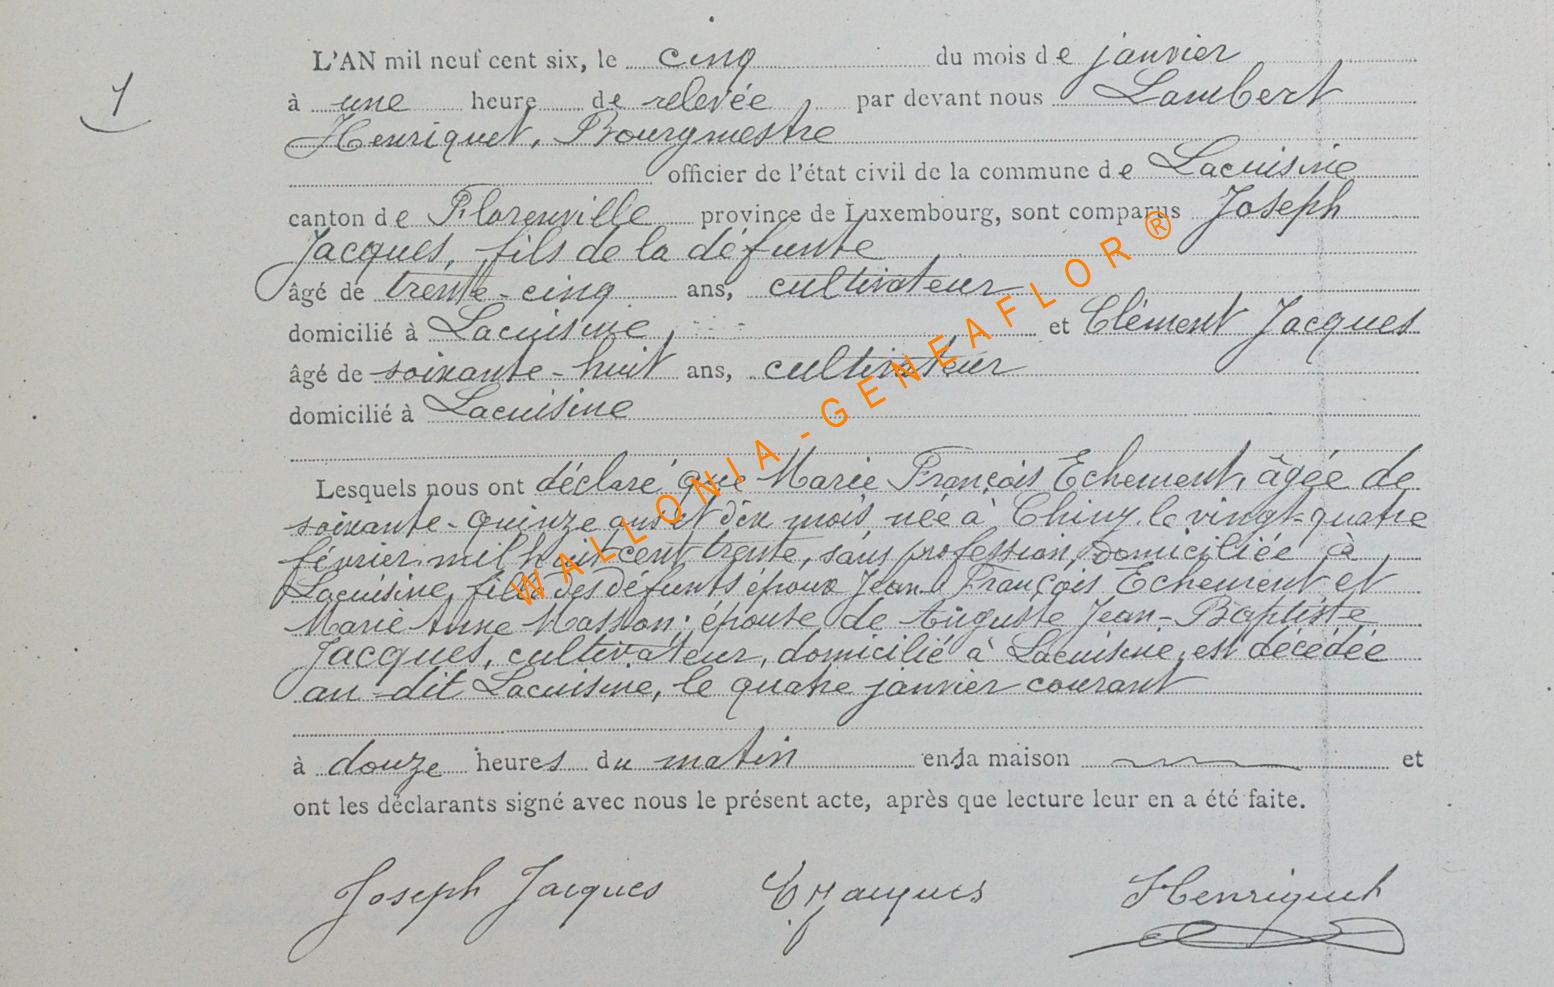 1
L'AN mil neuf cent six, le cinq du mois de janvier
à une heure de relevée, par devant nous Lambert
Henriquet, Bourgmestre
officier de l'état civil de la commune de Lacuisine
canton de Florenville province de Luxembourg, sont comparus Joseph
Jacques, fils de la défunte
âgé de trente-cinq ans, cultivateur
domicilié à Lacuisine, et Clément Jacques
âgé de soixante-huit ans, cultivateur
domicilié à Lacuisine
Lesquels nous ont déclaré que Marie François Echement, âgée de
soixante-quinze ans et dix mois née à Chiny, le vingt-quatre
février mil huit cent trente, sans profession, domiciliée à
Lacuisine, fille des défunts époux Jean François Echement et
Marie Anne Masson; épouse de Auguste Jean-Baptiste
Jacques, cultivateur, domicilié à Lacuisine, est décédée
au-dit Lacuisine, le quatre janvier courant
à douze heures du matin en sa maison et
ont les déclarants signé avec nous le présent acte, après que lecture leur en a été faite.
Joseph Jacques Jacques Henriquet
WALLONIA-GENEAFLOR®